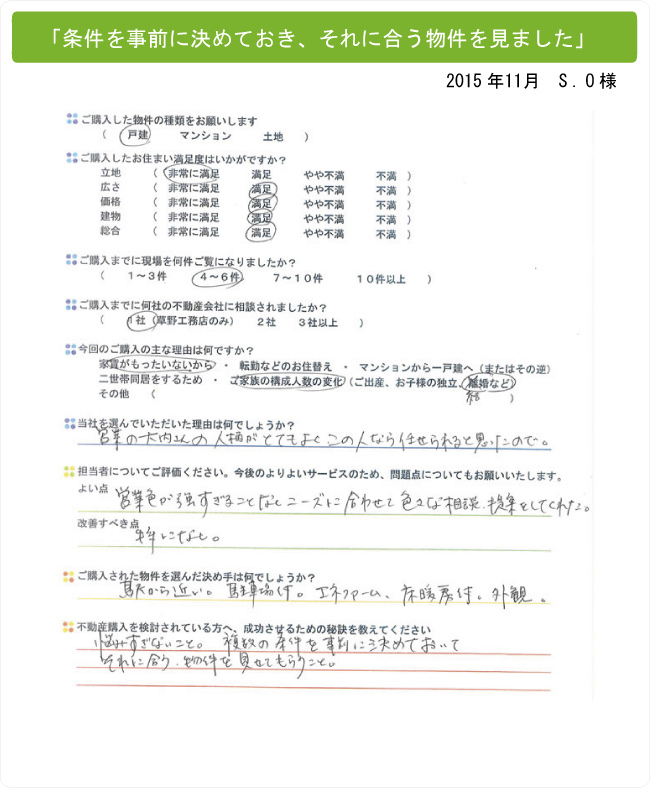 「条件を事前に決めておき、それに合う物件を見ました」
2015年11月　S.O様
ご購入した物件の種類をお願いします
（　戸建　マンション　土地　）
ご購入したお住まい満足度はいかがですか？
立地　（　非常に満足　満足　やや不満　不満　）
広さ　（　非常に満足　満足　やや不満　不満　）
価格　（　非常に満足　満足　やや不満　不満　）
建物　（　非常に満足　満足　やや不満　不満　）
総合　（　非常に満足　満足　やや不満　不満　）
ご購入までに現場を何件ご覧になりましたか？
（　１～３件　４～６件　７～１０件　１０件以上　）
ご購入までに何社の不動産会社に相談されましたか？
（　１社（草野工務店のみ）　２社　３社以上　）
今回のご購入の主な理由は何ですか？
家賃がもったいないから ・ 転勤などのお住替え ・ マンションから一戸建へ（またはその逆）
二世帯同居をするため ・ ご家族の構成人数の変化（ご出産、お子様の独立、離婚など）
その他　（　結　）
当社を選んでいただいた理由は何でしょうか？
営業の大内さんの人柄がとてもよくこの人なら任せられると思ったので。
担当者についてご評価ください。今後のよりよいサービスのため、問題点についてもお願いいたします。
よい点　営業色が強すぎることなくニーズに合わせて色々な相談、提案をしてくれた。
改善すべき点
特になし。
ご購入された物件を選んだ決め手は何でしょうか？
駅から近い。駐車場付。エネファーム、床暖房付。外観。
不動産購入を検討されている方へ、成功させるための秘訣を教えてください
悩みすぎないこと。複数の条件を事前に決めておいて
それに合う物件を見せてもらうこと。